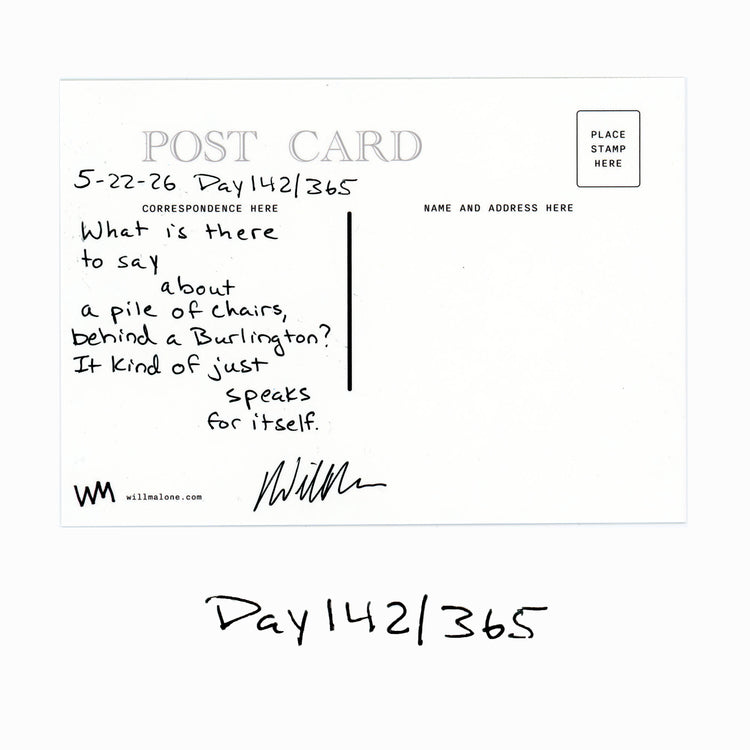 POST CARD
PLACE
STAMP
HERE
5-22-26 Day 142/365
CORRESPONDENCE HERE
NAME AND ADDRESS HERE
What is there
to say
about
a pile of chairs,
behind a Burlington?
It kind of just
speaks
for itself.
WM willmalone.com
Day 142/365